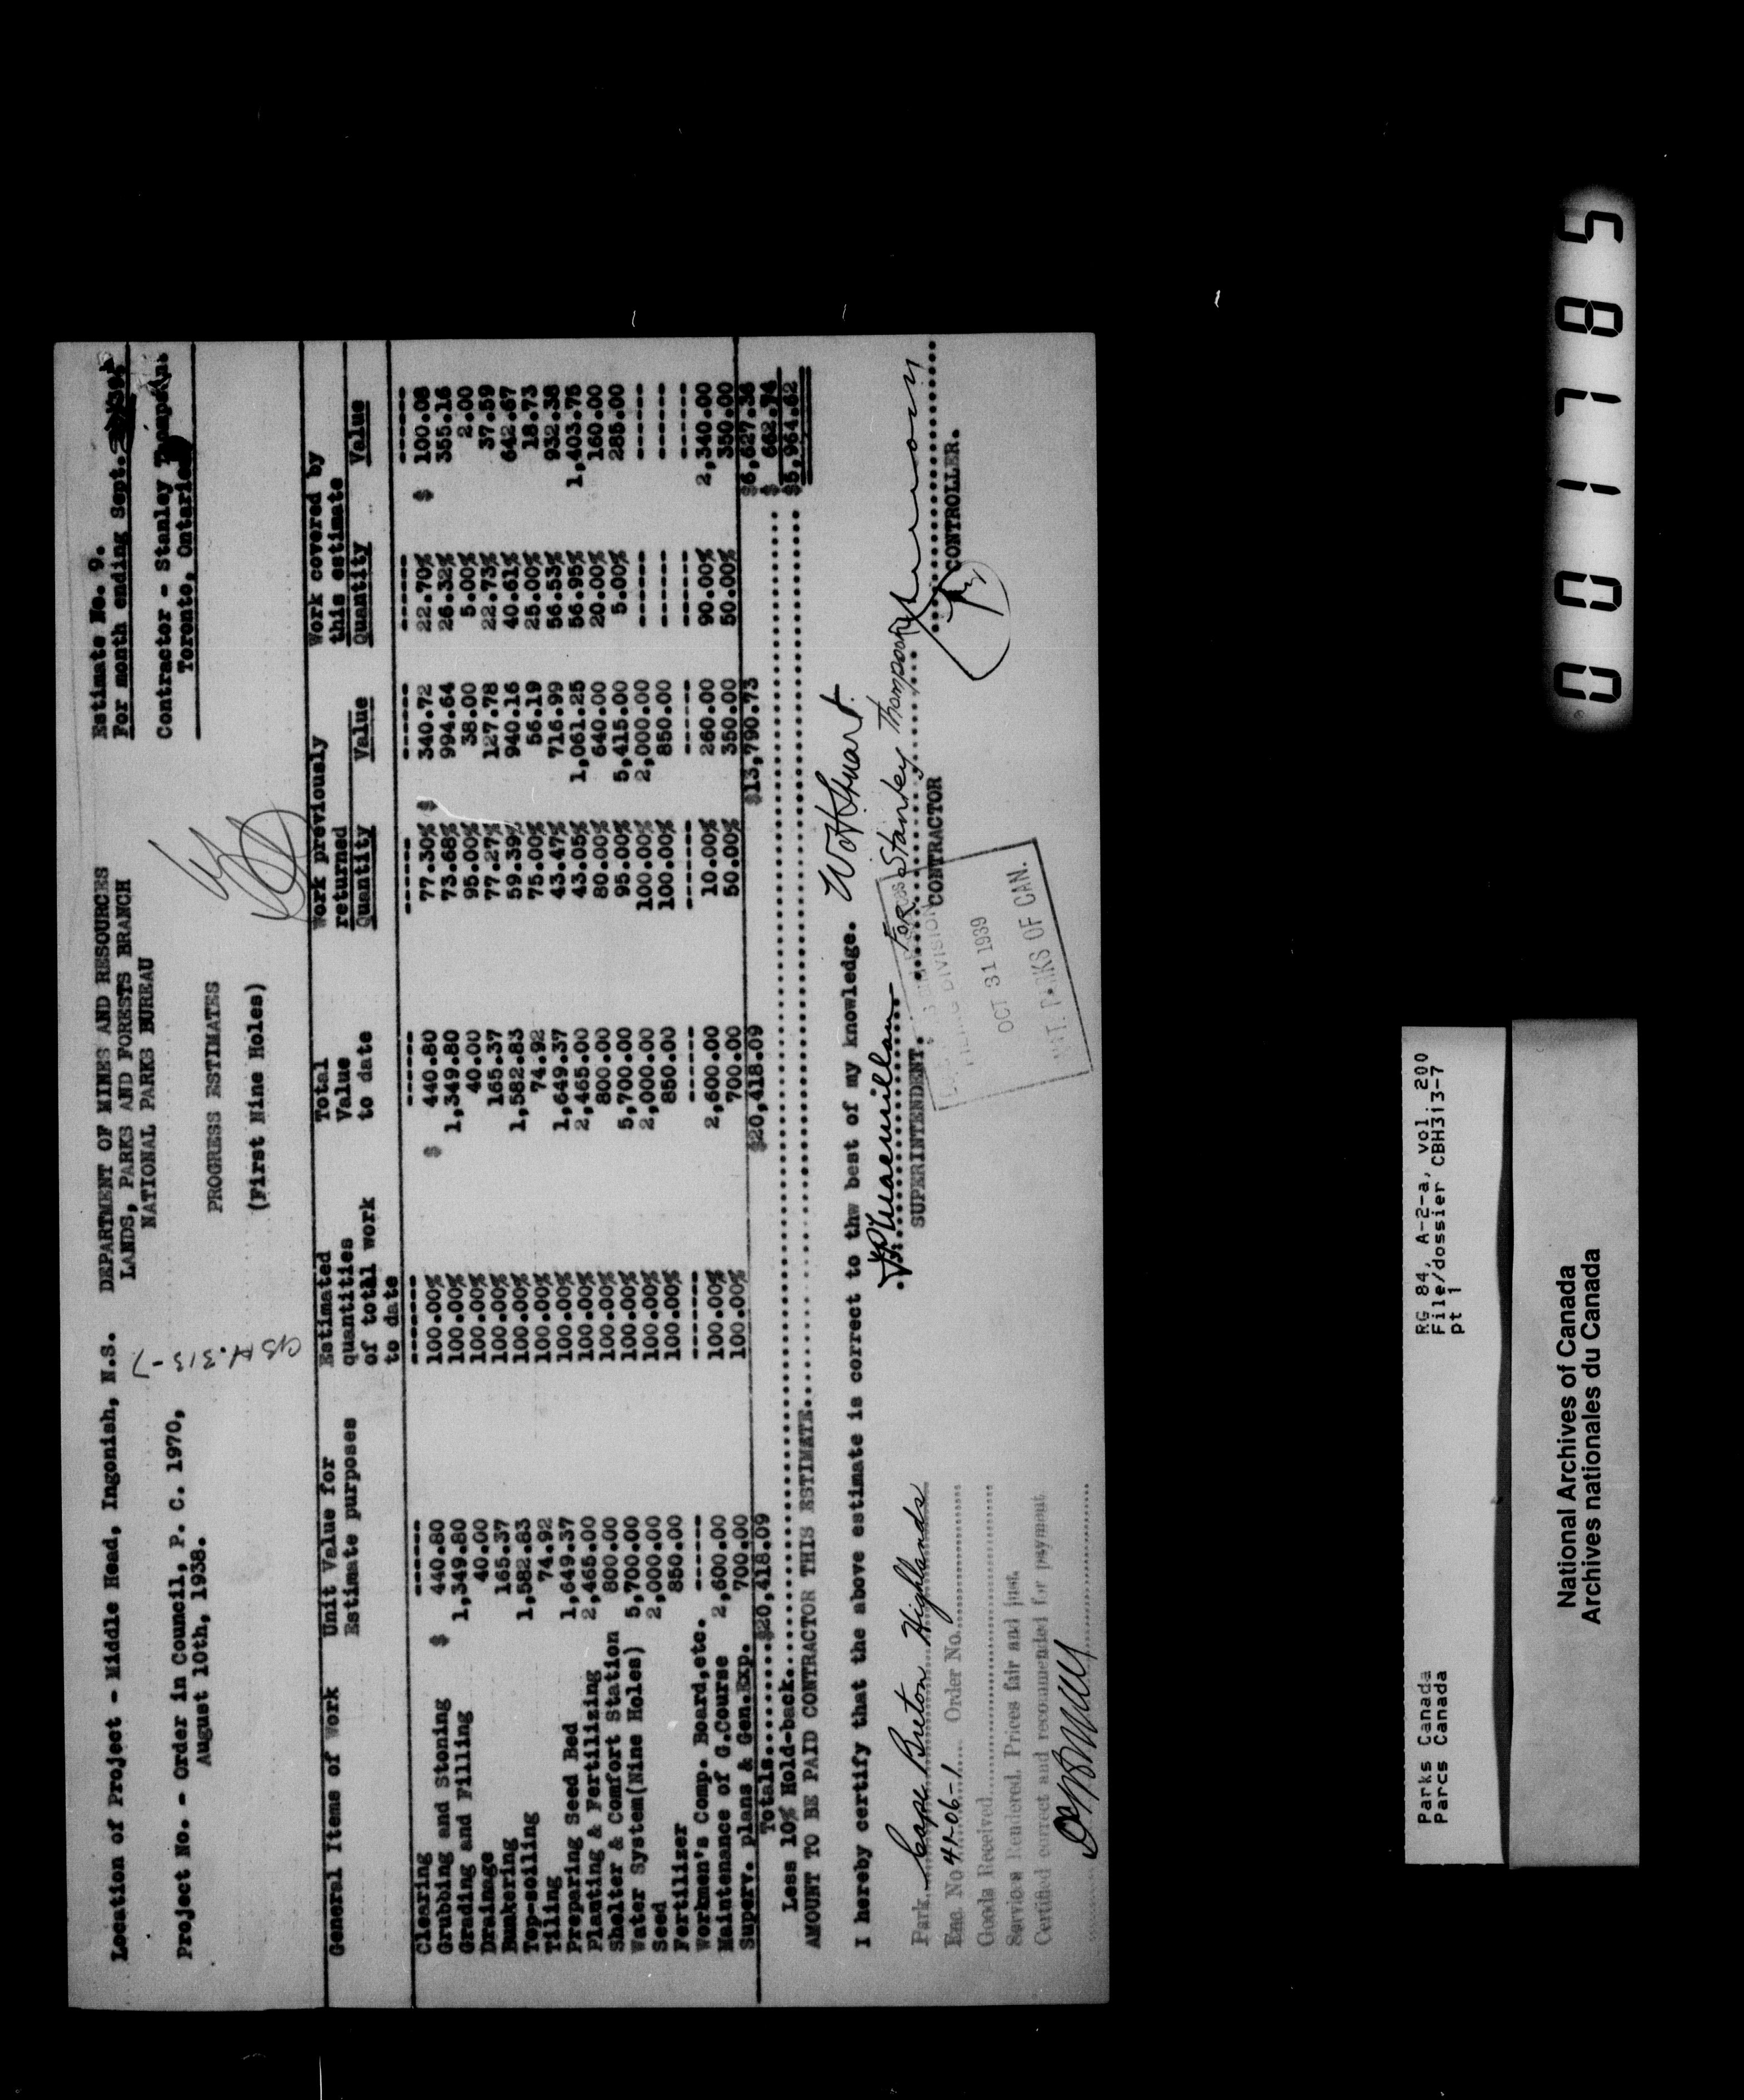 Location of Project - Middle Head, Ingonish, N.S. DEPARTMENT OF MINES AND RESOURCES Estimate No. 9.
LANDS, PARKS AND FORESTS BRANCH For month ending Sept.
NATIONAL PARKS BUREAU
Project No. - Order in Council, P. C. 1970, Contractor - Stanley Thompson
August 10th, 1938. Toronto, Ontario
PROGRESS ESTIMATES
(First Nine Holes)
General Items of Work Unit Value for Estimated Total Work previously Work covered by
Estimate purposes quantities Value returned this estimate
of total work to date Quantity Value Quantity Value
to date
Clearing ------ ------ ------ ------ ------ ------ ------
Grubbing and Stoning $ 440.80 100.00% $ 440.80 77.30% $ 340.72 22.70% $ 100.08
Grading and Filling 1,349.80 100.00% 1,349.80 73.68% 994.64 26.32% 355.16
Drainage 40.00 100.00% 40.00 95.00% 38.00 5.00% 2.00
Bunkering 165.37 100.00% 165.37 77.27% 127.78 22.73% 37.59
Top-soiling 1,582.83 100.00% 1,582.83 59.39% 940.16 40.61% 642.67
Tiling 74.92 100.00% 74.92 75.00% 56.19 25.00% 18.73
Preparing Seed Bed 1,649.37 100.00% 1,649.37 43.47% 716.99 56.53% 932.38
Planting & Fertilizing 2,465.00 100.00% 2,465.00 43.05% 1,061.25 56.95% 1,403.75
Shelter & Comfort Station 800.00 100.00% 800.00 80.00% 640.00 20.00% 160.00
Water System(Nine Holes) 5,700.00 100.00% 5,700.00 95.00% 5,415.00 5.00% 285.00
Seed 2,000.00 100.00% 2,000.00 100.00% 2,000.00 ------ ------
Fertilizer 850.00 100.00% 850.00 100.00% 850.00 ------ ------
Workmen's Comp. Board,etc. ------ ------ ------ ------ ------ ------ ------
Maintenance of G.Course 2,600.00 100.00% 2,600.00 10.00% 260.00 90.00% 2,340.00
Superv. plans & Gen.Exp. 700.00 100.00% 700.00 50.00% 350.00 50.00% 350.00
Totals.........$20,418.09 $20,418.09 $13,790.73 $6,627.36
Less 10% Hold-back.......... $ 662.74
AMOUNT TO BE PAID CONTRACTOR THIS ESTIMATE.......... $5,964.62
I hereby certify that the above estimate is correct to thw best of my knowledge.
For Stanley Thompson
SUPERINTENDENT. CONTRACTOR CONTROLLER.
Park Cape Breton Highlands
Enc. No 41-06-1 Order No.
Goods Received
Services Rendered. Prices fair and just.
Certified correct and recommended for payment
FILING DIVISION
OCT 31 1939
NAT. PARKS OF CAN.
Parks Canada
Parcs Canada
RG 84, A-2-a, vol. 200
File/dossier CBH313-7
pt 1
National Archives of Canada
Archives nationales du Canada
001785